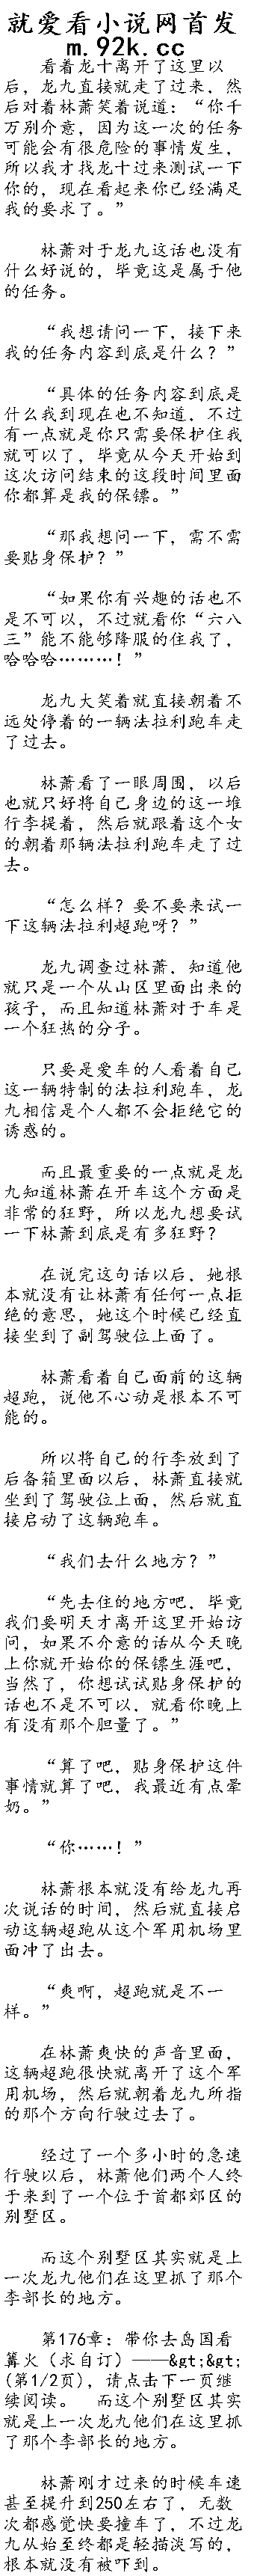 就爱看小说网首发
m.92k.cc
看着龙十离开了这里以
后，龙九直接就走了过来，然
后对着林萧笑着说道：“你千
万别介意，因为这一次的任务
可能会有很危险的事情发生，
所以我才找龙十过来测试一下
你的，现在看起来你已经满足
我的要求了。”
林萧对于龙九这话也没有
什么好说的，毕竟这是属于他
的任务。
“我想请问一下，接下来
我的任务内容到底是什么？”
“具体的任务内容到底是
什么我到现在也不知道，不过
有一点就是你只需要保护住我
就可以了，毕竟从今天开始到
这次访问结束的这段时间里面
你都算是我的保镖。”
“那我想问一下，需不需
要贴身保护？”
“如果你有兴趣的话也不
是不可以，不过就看你“六八
三”能不能够降服的住我了，
哈哈哈………！”
龙九大笑着就直接朝着不
远处停着的一辆法拉利跑车走
了过去。
林萧看了一眼周围，以后
也就只好将自己身边的这一堆
行李提着，然后就跟着这个女
的朝着那辆法拉利跑车走了过
去。
“怎么样？要不要来试一
下这辆法拉利超跑呀？”
龙九调查过林萧，知道他
就只是一个从山区里面出来的
孩子，而且知道林萧对于车是
一个狂热的分子。
只要是爱车的人看着自己
这一辆特制的法拉利跑车，龙
九相信是个人都不会拒绝它的
诱惑的。
而且最重要的一点就是龙
九知道林萧在开车这个方面是
非常的狂野，所以龙九想要试
一下林萧到底是有多狂野？
在说完这句话以后，她根
本就没有让林萧有任何一点拒
绝的意思，她这个时候已经直
接坐到了副驾驶位上面了。
林萧看着自己面前的这辆
超跑，说他不心动是根本不可
能的。
所以将自己的行李放到了
后备箱里面以后，林萧直接就
坐到了驾驶位上面，然后就直
接启动了这辆跑车。
“我们去什么地方？”
“先去住的地方吧，毕竟
我们要明天才离开这里开始访
问，如果不介意的话从今天晚
上你就开始你的保镖生涯吧，
当然了，你想试试贴身保护的
话也不是不可以，就看你晚上
有没有那个胆量了。”
“算了吧，贴身保护这件
事情就算了吧，我最近有点晕
奶。”
“你……！”
林萧根本就没有给龙九再
次说话的时间，然后就直接启
动这辆超跑从这个军用机场里
面冲了出去。
“爽啊，超跑就是不一
样。”
在林萧爽快的声音里面，
这辆超跑很快就离开了这个军
用机场，然后就朝着龙九所指
的那个方向行驶过去了。
经过了一个多小时的急速
行驶以后，林萧他们两个人终
于来到了一个位于首都郊区的
别墅区。
而这个别墅区其实就是上
一次龙九他们在这里抓了那个
李部长的地方。
第176章：带你去岛国看
篝火（求自订）——&gt;&gt;
(第1/2页)，请点击下一页继
续阅读。 而这个别墅区其实
就是上一次龙九他们在这里抓
了那个李部长的地方。
林萧刚才过来的时候车速
甚至提升到250左右了，无数
次都感觉快要撞车了，不过龙
九从始至终都是轻描淡写的，
根本就没有被吓到。